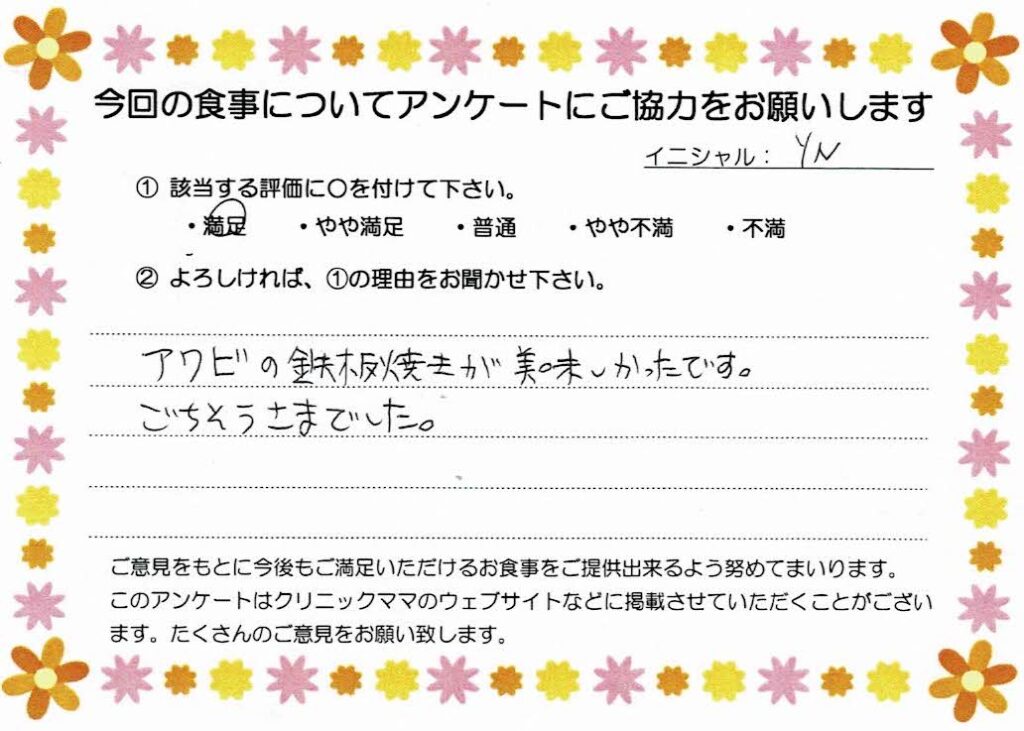 今回の食事についてアンケートにご協力をお願いします
イニシャル： YN
① 該当する評価に〇を付けて下さい。
・満足 ・やや満足 ・普通 ・やや不満 ・不満
② よろしければ、①の理由をお聞かせ下さい。
アワビの鉄板焼きが美味しかったです。
ごちそうさまでした。
ご意見をもとに今後もご満足いただけるお食事をご提供出来るよう努めてまいります。
このアンケートはクリニックママのウェブサイトなどに掲載させていただくことがござい
ます。たくさんのご意見をお願い致します。